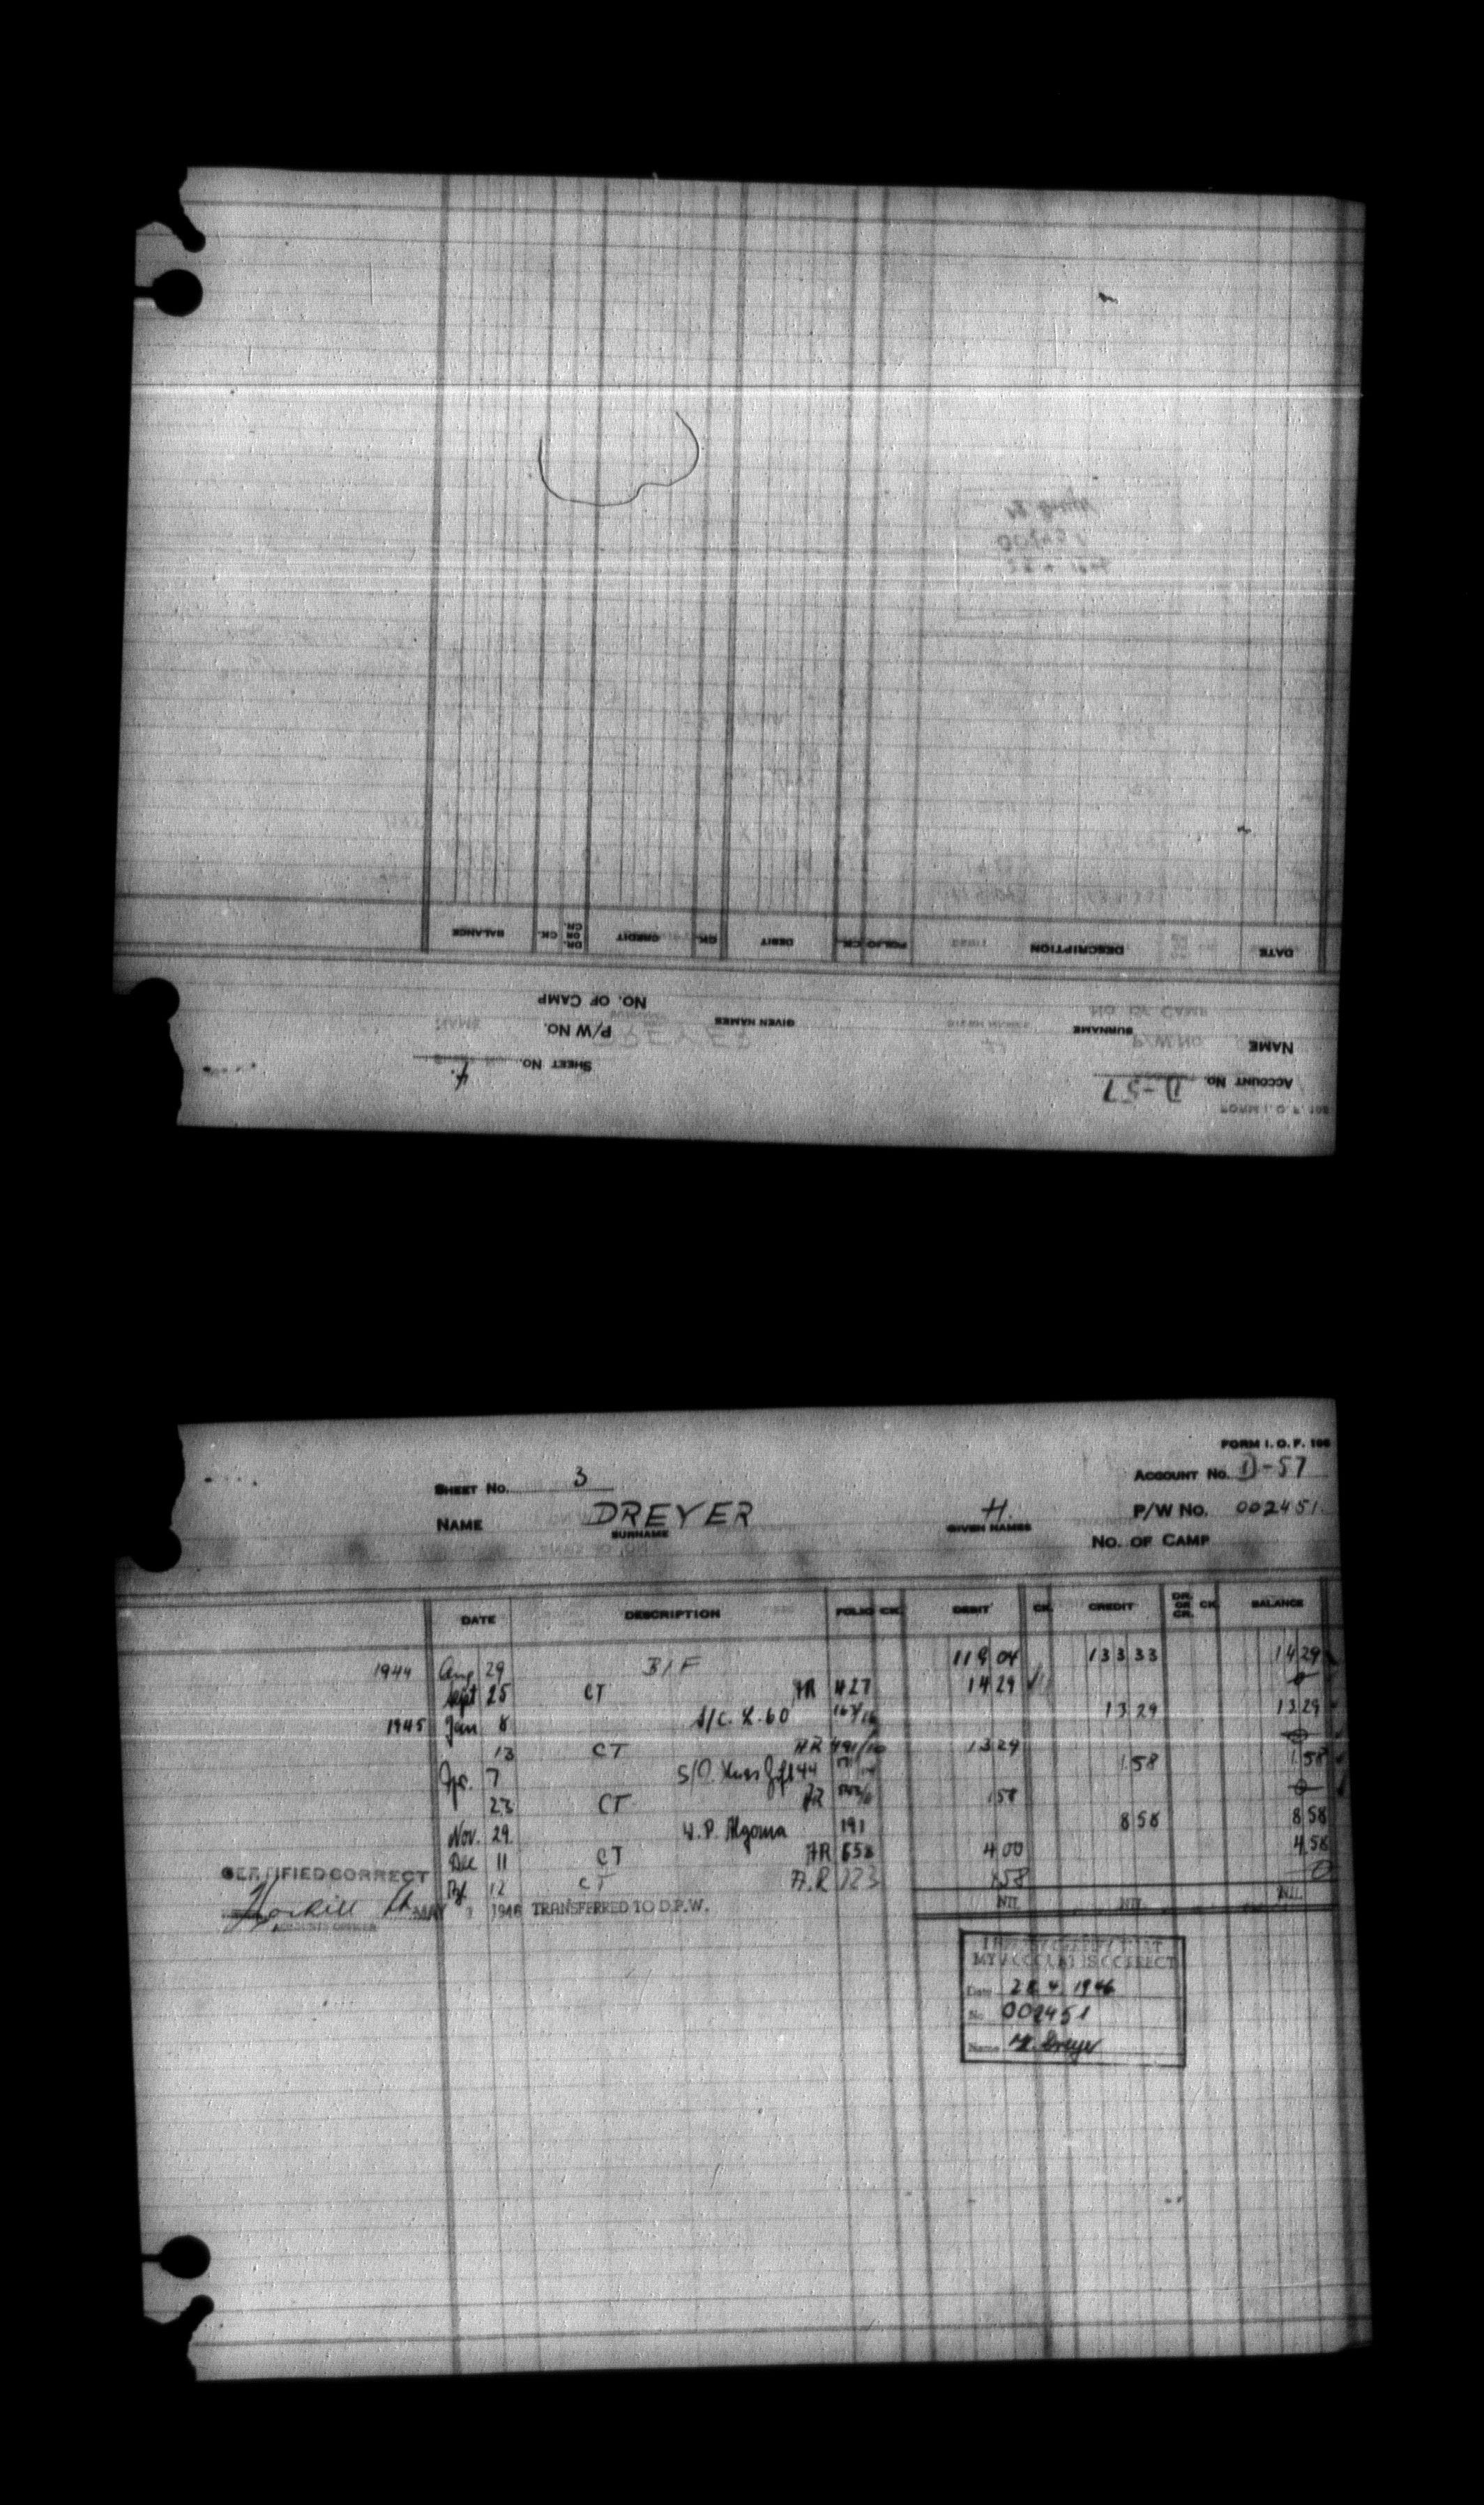 FORM I. O. F. 106
ACCOUNT No. D-57
SHEET No. 4.
NAME
SURNAME
GIVEN NAMES
P/W No.
NO. OF CAMP
DATE DESCRIPTION FOLIO CK. DEBIT CK. CREDIT DR. OR CR. CK. BALANCE
FORM I. O. F. 106
SHEET No. 3 ACCOUNT No. D-57
NAME DREYER H. P/W No. 002451
SURNAME GIVEN NAMES
NO. OF CAMP
DATE DESCRIPTION FOLIO CK. DEBIT CK. CREDIT DR. OR CR. CK. BALANCE
1944 Aug 29 B/F 119 04 133 33 14 29
Sept 25 CT AR 427 14 29 0
1945 Jan 8 S/C. X.60 13 29 13 29
13 CT AR 491/10 13 29 0
Apr. 7 S/O. Xmas Gift 44 1 58 1 58
23 CT AR 1 58 0
Nov. 29 W.P. Algoma 191 8 58 8 58
Dec 11 CT AR 658 4 00 4 58
12 CT A.R 723 4 58 0
CERTIFIED CORRECT
MAY 1946 TRANSFERRED TO D.P.W. NIL NIL NIL
ACCOUNTS OFFICER
I HEREBY CERTIFY THAT
MY ACCOUNT IS CORRECT
Date 28.4.1946
No. 002451
Name H. Dreyer